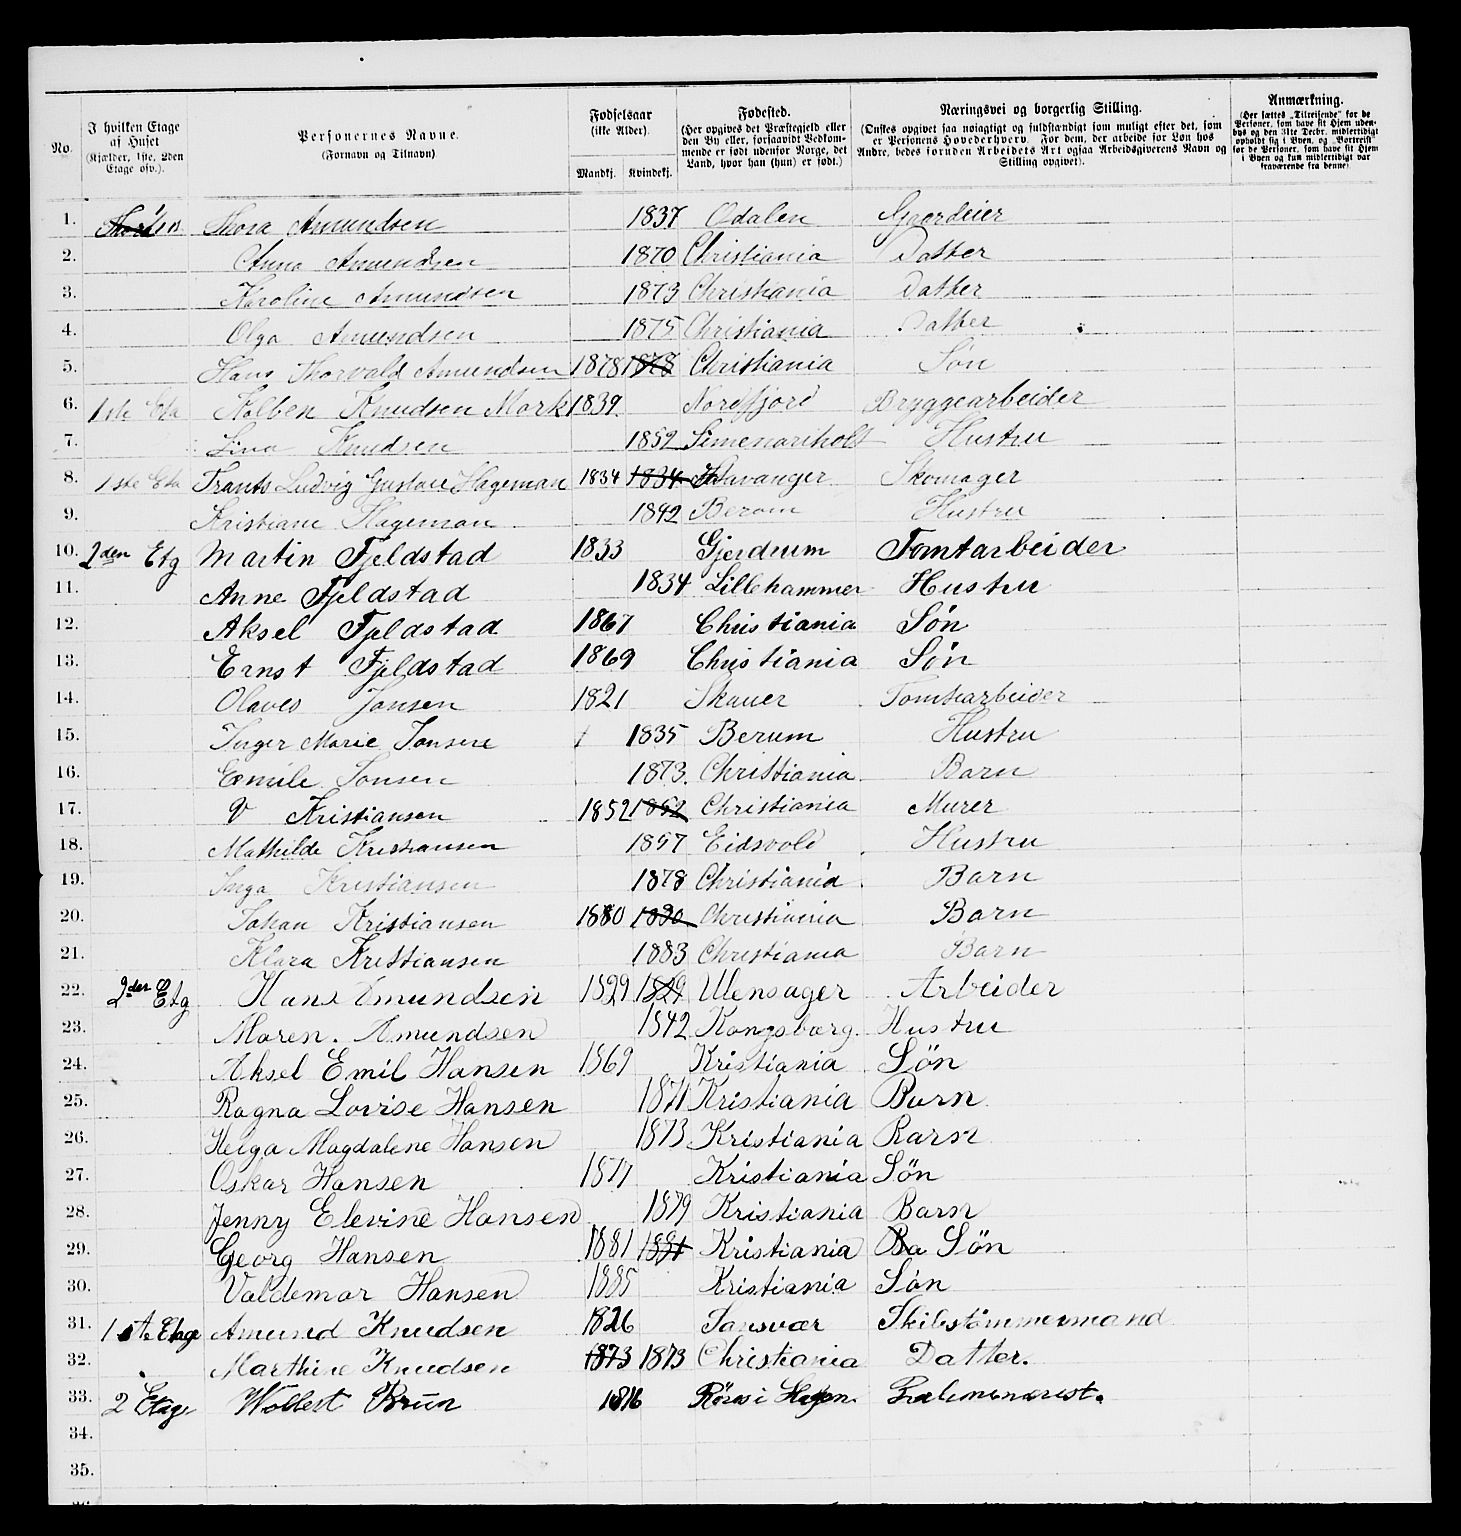 No. I hvilken Etage af Huset (Kjælder, 1ste, 2den Etage osv.). Personernes Navne. (Fornavn og Tilnavn) Fødselsaar (ikke Alder). Mandkj. Kvindekj. Fødested. (Her opgives det Præstegjeld eller den By eller, forsaavidt Vedkommende er født udenfor Norge, det Land, hvor han (hun) er født.) Næringsvei og borgerlig Stilling. (Ønskes opgivet saa nøiagtigt og fuldstændigt som muligt efter det, som er Personens Hovederhverv. For dem, der arbeide for Løn hos Andre, bedes foruden Arbeidets Art ogsaa Arbeidsgiverens Navn og Stilling opgivet). Anmærkning. (Her sættes „Tilreisende" for de Personer, som have sit Hjem udenbys og den 31te Decbr. midlertidigt opholdt sig i Byen, og „Bortreist" for de Personer, som have sit Hjem i Byen og kun midlertidigt var fraværende fra denne).
1. Thora Amundsen 1837 Odalen Gaardeier
2. Anna Amundsen 1870 Christiania Datter
3. Karoline Amundsen 1873 Christiania Datter
4. Olga Amundsen 1875 Christiania Datter
5. Hans Thorvald Amundsen 1878 1878 Christiania Søn
6. 1ste Eta Kolben Knudsen Mork 1839 Nordfjord Bryggearbeider
7. Lina Knudsen 1852 Hustru
8. 1ste Eta Frants Ludvig Gustav Hageman 1834 1834 Stavanger Skomager
9. Kristiane Hageman 1842 Berom Hustru
10. 2den Etg Martin Fjeldstad 1833 Gjerdrum Tomtarbeider
11. Anne Fjeldstad 1834 Lillehammer Hustru
12. Aksel Fjeldstad 1867 Christiania Søn
13. Ernst Fjeldstad 1869 Christiania Søn
14. Olaves Jonsen 1821 Skauer Tomtearbeider
15. Inger Marie Jonsene 1835 Berum Hustru
16. Emile Jonsen 1873. Christiania Barn
17. V Kristiansen 1852 1852 Christiania Murer
18. Mathilde Kristiansen 1857 Eidsvold Hustru
19. Inga Kristiansen 1878 Christiania Barn
20. Johan Kristiansen 1880 1880 Christiania Barn
21. Klara Kristiansen 1883 Christiania Barn
22. 2den Etg Hans Amundsen 1829 1829 Ulensager Arbeider
23. Maren. Amundsen 1842 Kongsbærg. Hustru
24. Aksel Emil Hansen 1869 Kristiania Søn
25. Ragna Lovise Hansen 1871 Kristiania Barn
26. Helga Magdalene Hansen 1873 Kristiania Barn
27. Oskar Hansen 1877 Kristiania Søn
28. Jenny Elevine Hansen 1879 Kristiania Barn
29. Georg Hansen 1881 1881 Kristiania Ba Søn
30. Valdemar Hansen 1885 Kristiania Søn
31. 1ste Etage Amund Knudsen 1826 Sansvær Skibstømmermand
32. Marthine Knudsen 1873 1873 Christiania Datter.
33. 2 Etage Wollert Bruun 1816 Røros
34.
35.